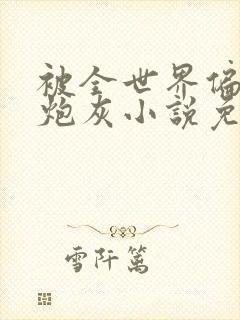 被全世界偏
炮灰小說免
雪阡篱